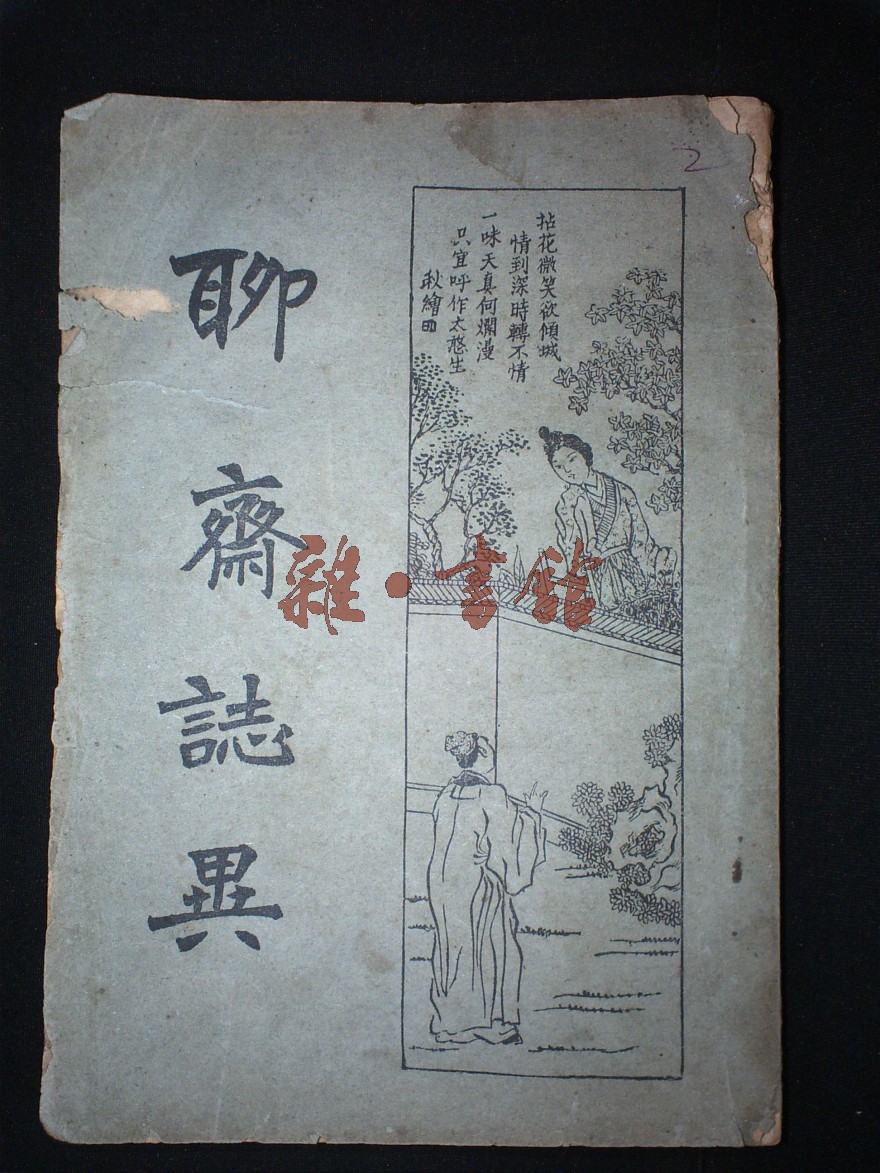 聊齋誌異
拈花微笑欲傾城
情到深時轉不情
一味天真何爛漫
只宜呼作太憨生
秋繪
2
雜·書館